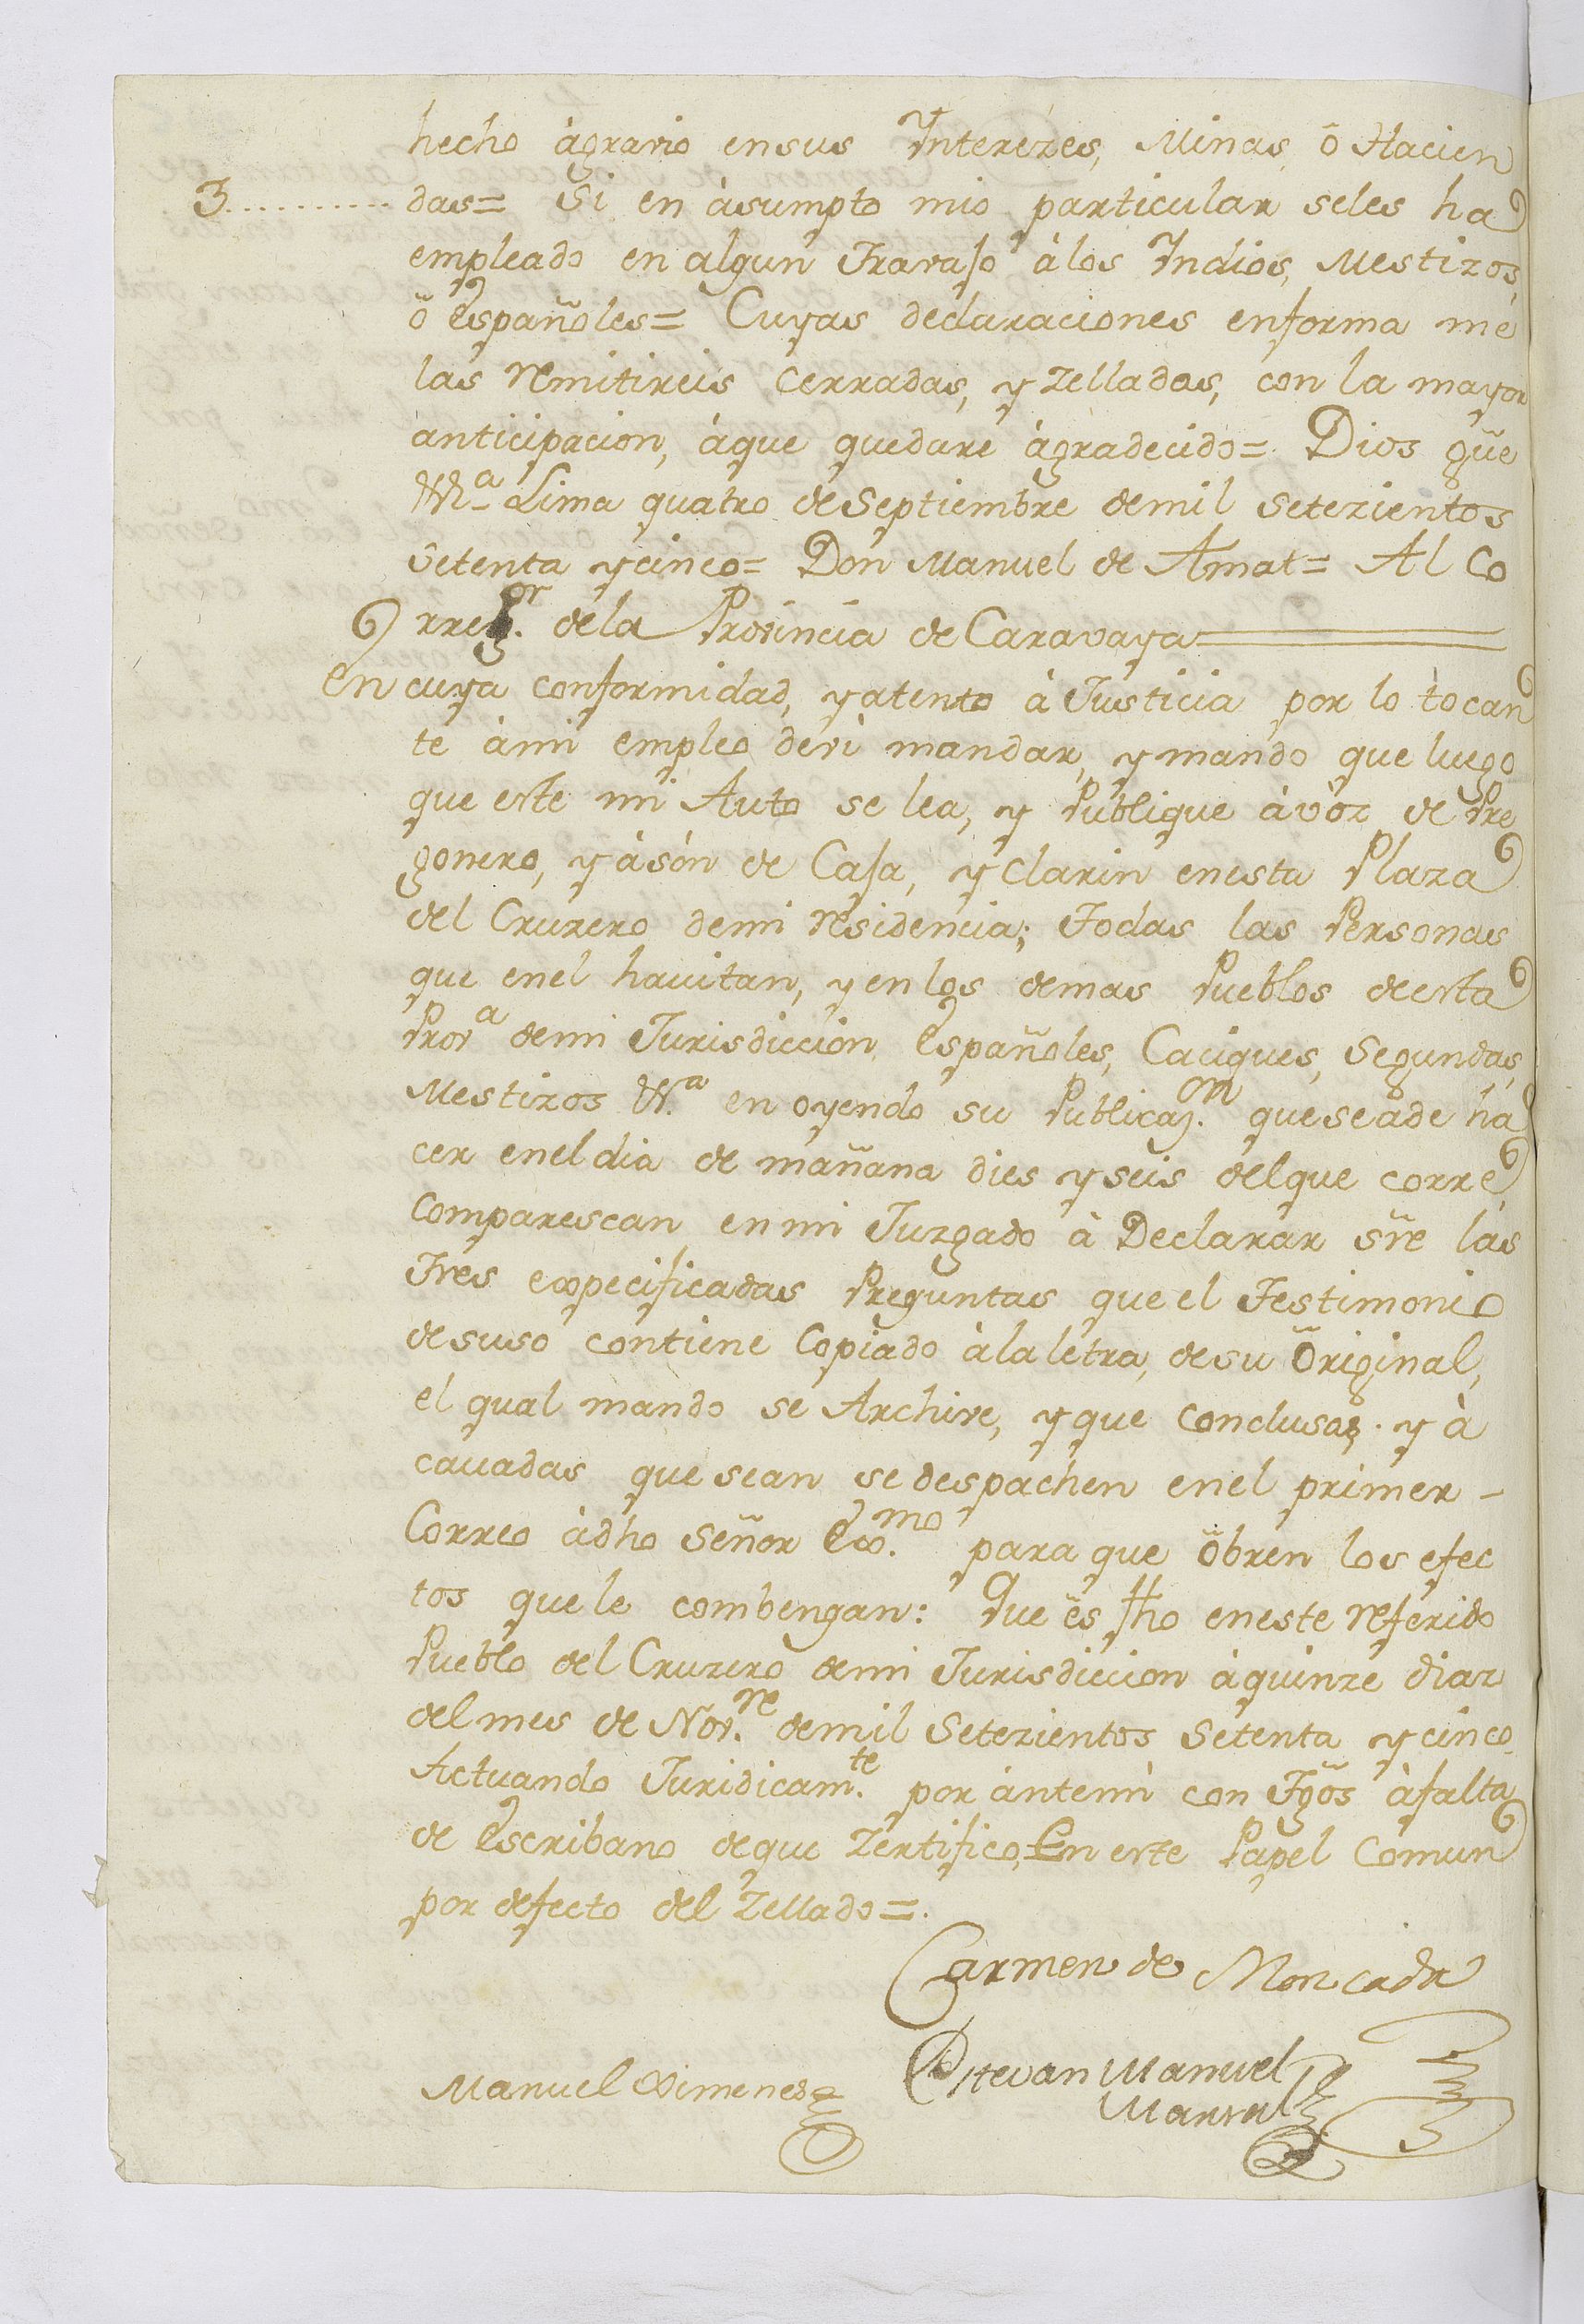 hecho àgravio ensus Interezes, Minas, ò Hacien
3.......... das= Si en àsumpto mio particular seles ha
empleado en algun Travajo àlos Indios, Mestizos,
ò Españoles= Cuyas declaraciones enforma me
las remitireis cerradas, y zelladas, con la mayor
anticipacion, àque quedarè àgradecido= Dios gũe
Lima quatro de Septiembre demil setezientos
setenta ycinco= Don Manuel de Amat= Al Co
rreg.or dela Provincia de Caravaya
En cuya conformidad, yatento à Justicia por lo tocan
te àmi empleo devì mandar, y mando que luego
que este mi Auto se lea, y Publique àvoz de Pre
gonero, yàsòn de Caja, yclarin enesta Plaza
del Cruzero demi residencia; Todas las Personas
que enel havitan, yenlos demas Pueblos deesta
Prova demi Jurisdiccion Españoles, Caciques, Segundas,
Mestizos &.a en oyendo su Publicaz.on queseade ha
cer eneldia de mañana dies yseis delque corre
Comparescan enmi Juzgado à Declarar sr̃e las
Tres expecificadas Preguntas que el Testimonio
desuso contiene Copiado àlaletra, desu Original,
el qual mando se Archive, yque conclusas, y à
cavadas quesean sedespachen enel primer -
Correo àdho Señor Ex.mo para que öbren los efec
tos quele combengan: Que ës fho eneste referido
Pueblo del Cruzero demi Jurisdiccion àquinze diaz
delmes de Nov.re demil Setezientos Setenta ycinco
Actuando Juridicam.te por ántemì con Tg̃os àfalta
de Escribano deque zertifico, En este Papel Comun
por defecto del zellado=.
Carmen de Moncada
Manuel Ximenes
Estevan Manuel